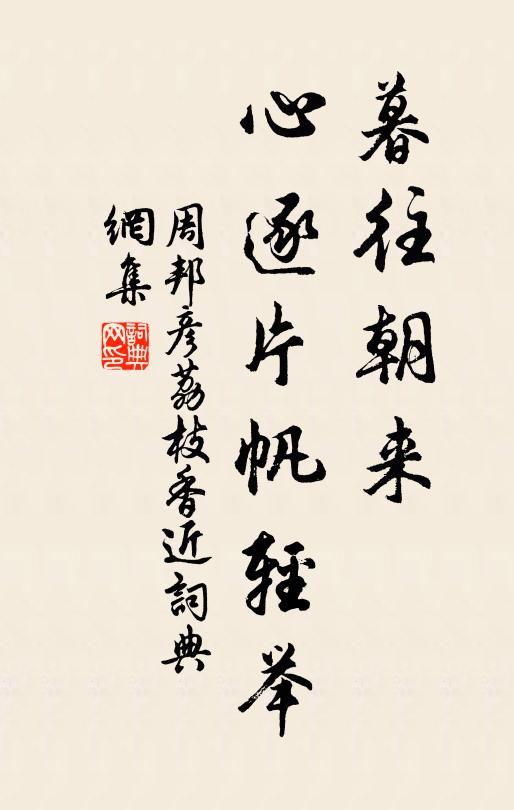 暮往朝来
心逐片帆輕举
周邦彦荔枝香近詞典
網集
詞典
网印